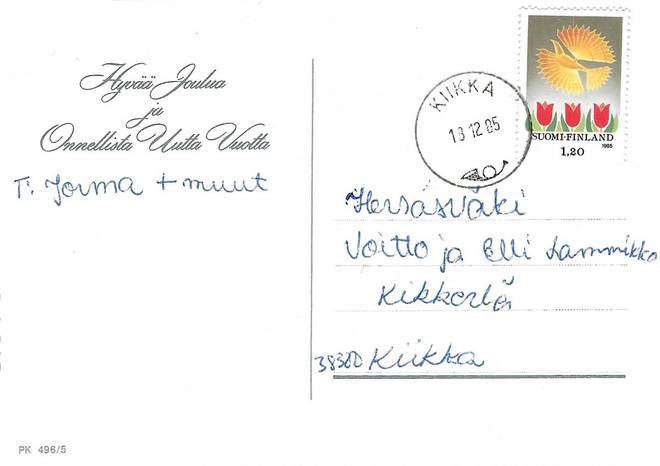 Hyvää Joulua
ja
Onnellista Uutta Vuotta
T: Jorma + muut
KIIKKA
13 12 85
SUOMI-FINLAND
1985
1,20
Herrasväki
Voitto ja Elli Lammikko
Kikkerlä
38300 Kiikka
PK 496/5